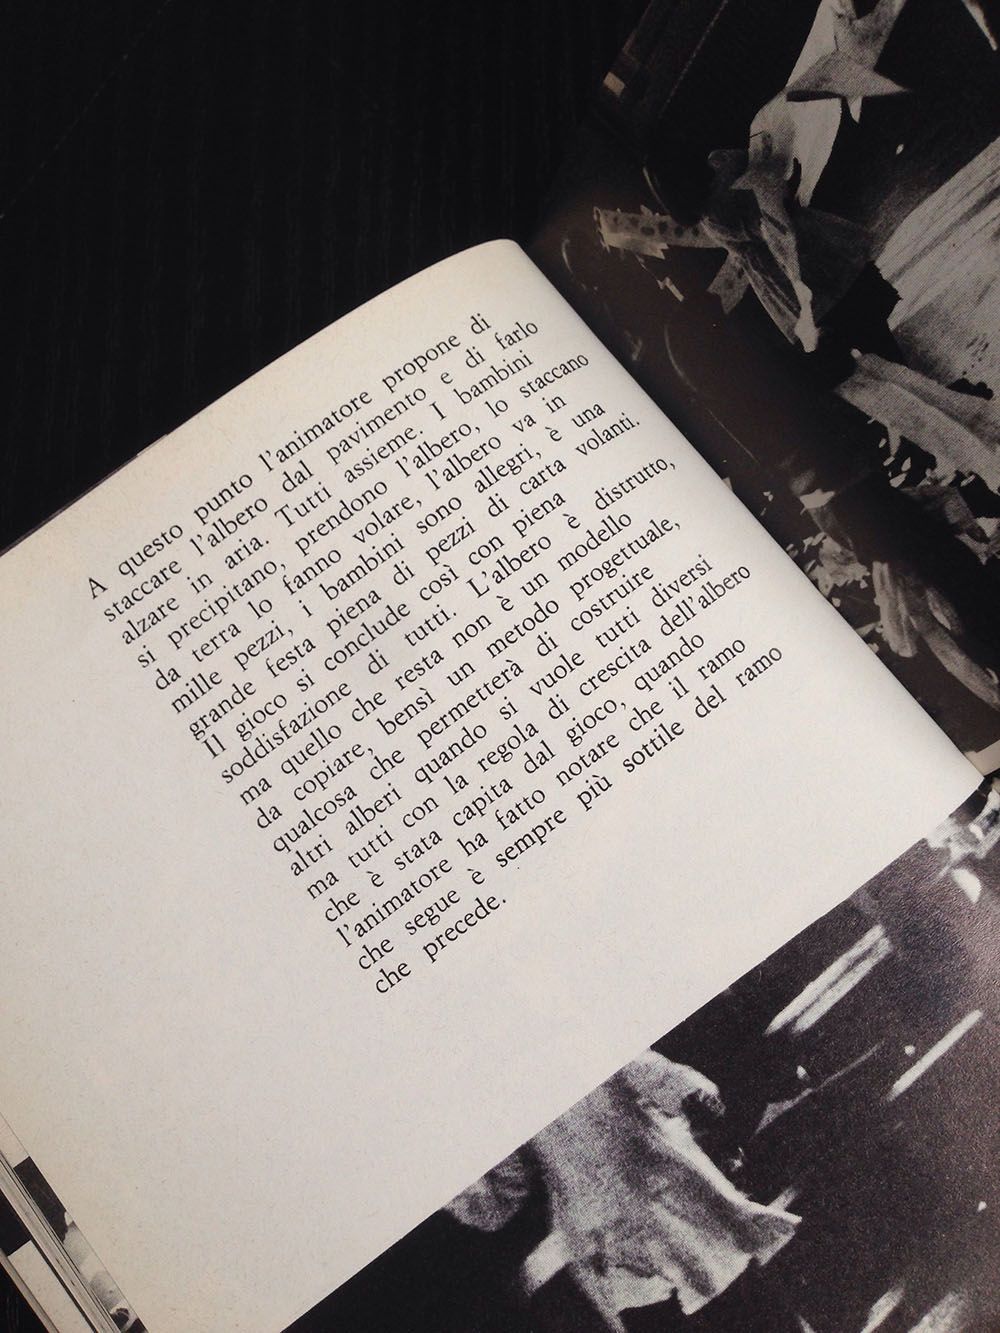 A questo punto l'animatore propone di
staccare l'albero dal pavimento e di farlo
alzare in aria. Tutti assieme. I bambini
si precipitano, prendono l'albero, lo staccano
da terra lo fanno volare, l'albero va in
mille pezzi, i bambini sono allegri, è una
grande festa piena di pezzi di carta volanti.
Il gioco si conclude così con piena
soddisfazione di tutti. L'albero è distrutto,
ma quello che resta non è un modello
da copiare, bensì un metodo progettuale,
qualcosa che permetterà di costruire
altri alberi quando si vuole tutti diversi
ma tutti con la regola di crescita dell'albero
che è stata capita dal gioco, quando
l'animatore ha fatto notare che il ramo
che segue è sempre più sottile del ramo
che precede.